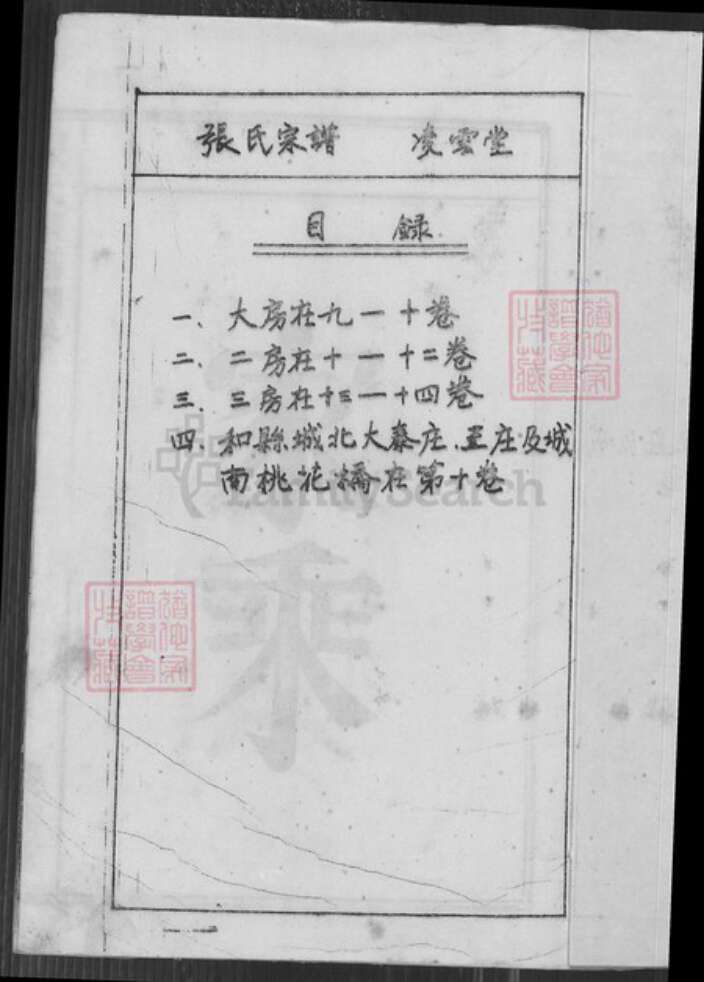 張氏宗譜 凌雲堂
目 錄
一、大房在九一十卷
二、二房在十一十二卷
三、三房在十三一十四卷
四、和縣城北大秦庄、王庄及城
南桃花橋在第十卷
FamilySearch
家
乘